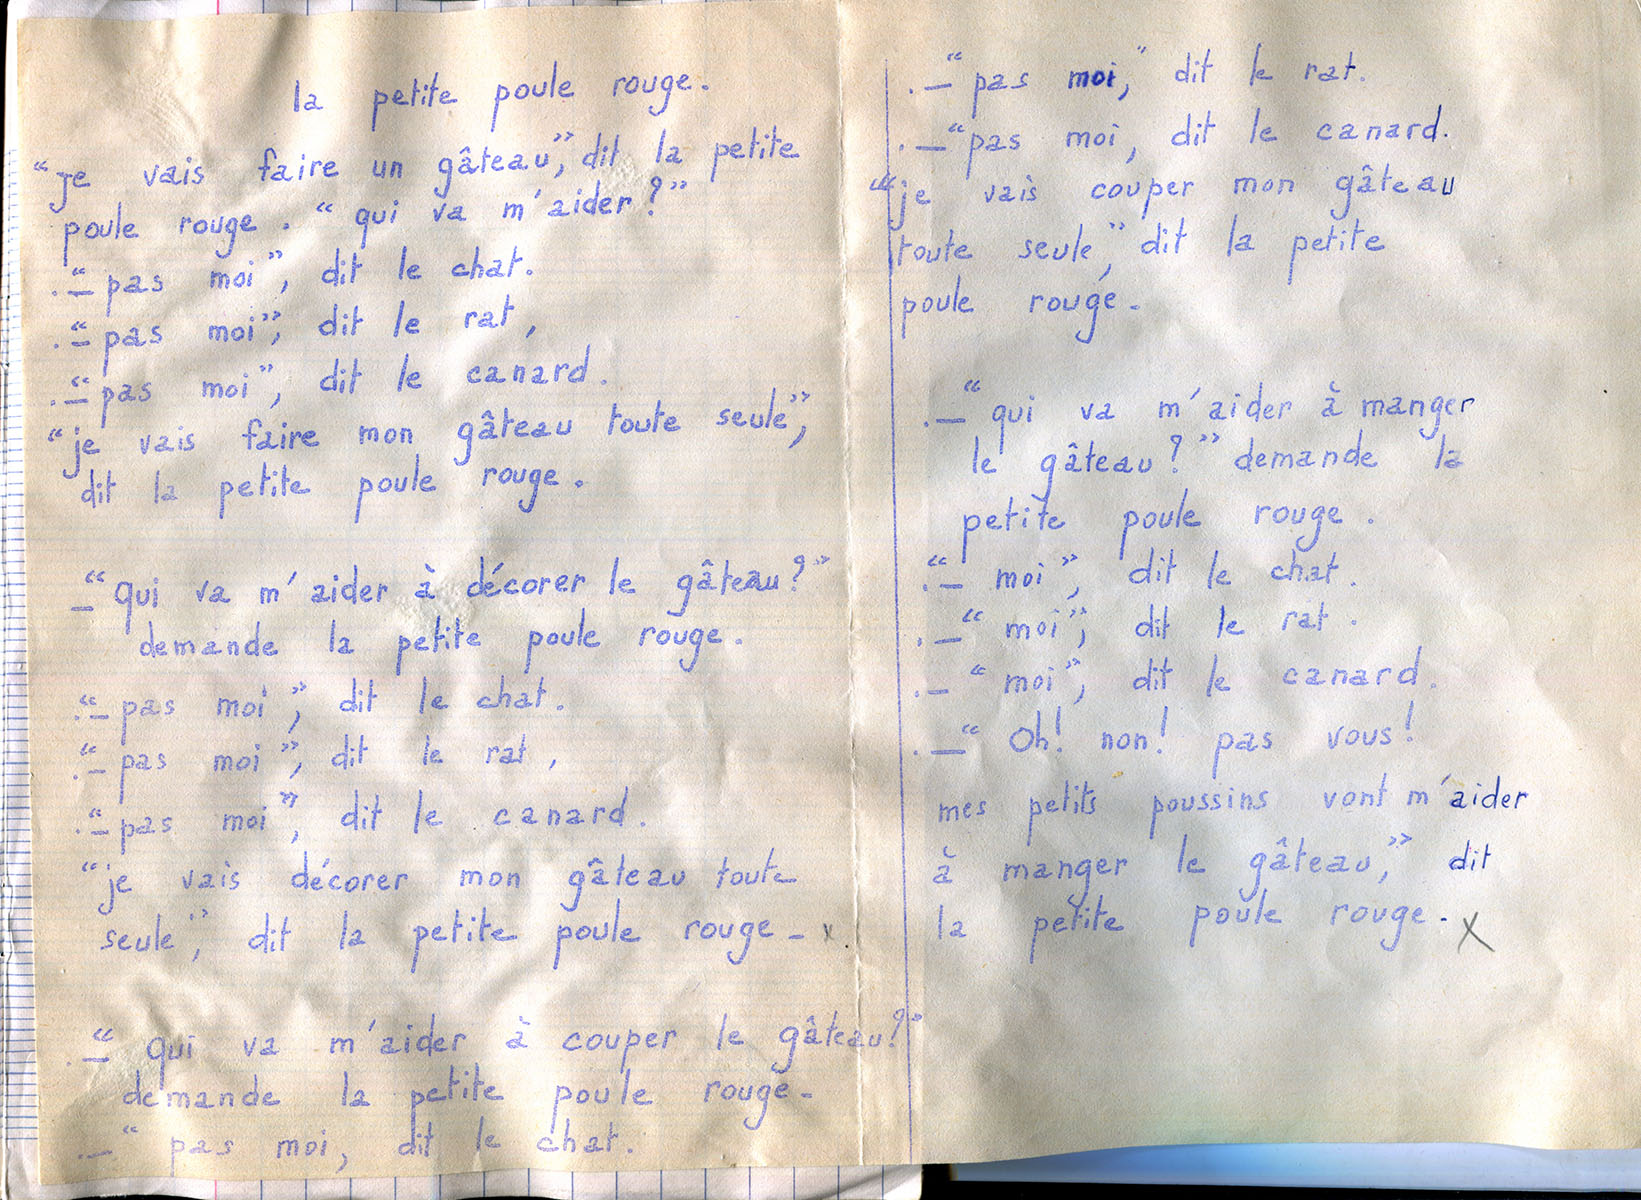 la petite poule rouge.
“je vais faire un gâteau”, dit la petite
poule rouge. “qui va m'aider ?”
.“– pas moi”, dit le chat.
.“– pas moi”, dit le rat,
.“– pas moi”, dit le canard.
“je vais faire mon gâteau toute seule”,
dit la petite poule rouge.
–“Qui va m'aider à décorer le gâteau ?”
demande la petite poule rouge.
.“– pas moi”, dit le chat.
.“– pas moi”, dit le rat,
.“– pas moi”, dit le canard.
“je vais décorer mon gâteau toute
seule”, dit la petite poule rouge – x
.–“ qui va m'aider à couper le gâteau ?”
demande la petite poule rouge –
.–“ pas moi, dit le chat.
.–“pas moi,” dit le rat.
.–“pas moi, dit le canard.
“je vais couper mon gâteau
toute seule”, dit la petite
poule rouge –
.–“qui va m'aider à manger
le gâteau ?” demande la
petite poule rouge.
.“– moi”, dit le chat.
.–“ moi”, dit le rat.
.–“ moi”, dit le canard.
.–“ Oh! non! pas vous!
mes petits poussins vont m'aider
à manger le gâteau,” dit
la petite poule rouge – X